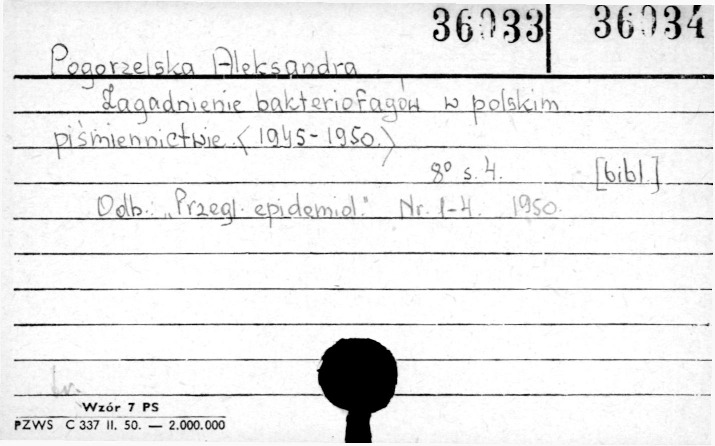 36033 36034
Pogorzelska Aleksandra
Zagadnienie bakteriofagów w polskim
piśmiennictwie <1945-1950.>
8° s. 4. [bibl.]
Odb.: "Przegl. epidemiol." Nr. 1-4. 1950.
Wzór 7 PS
PZWS C 337 II. 50. — 2.000.000